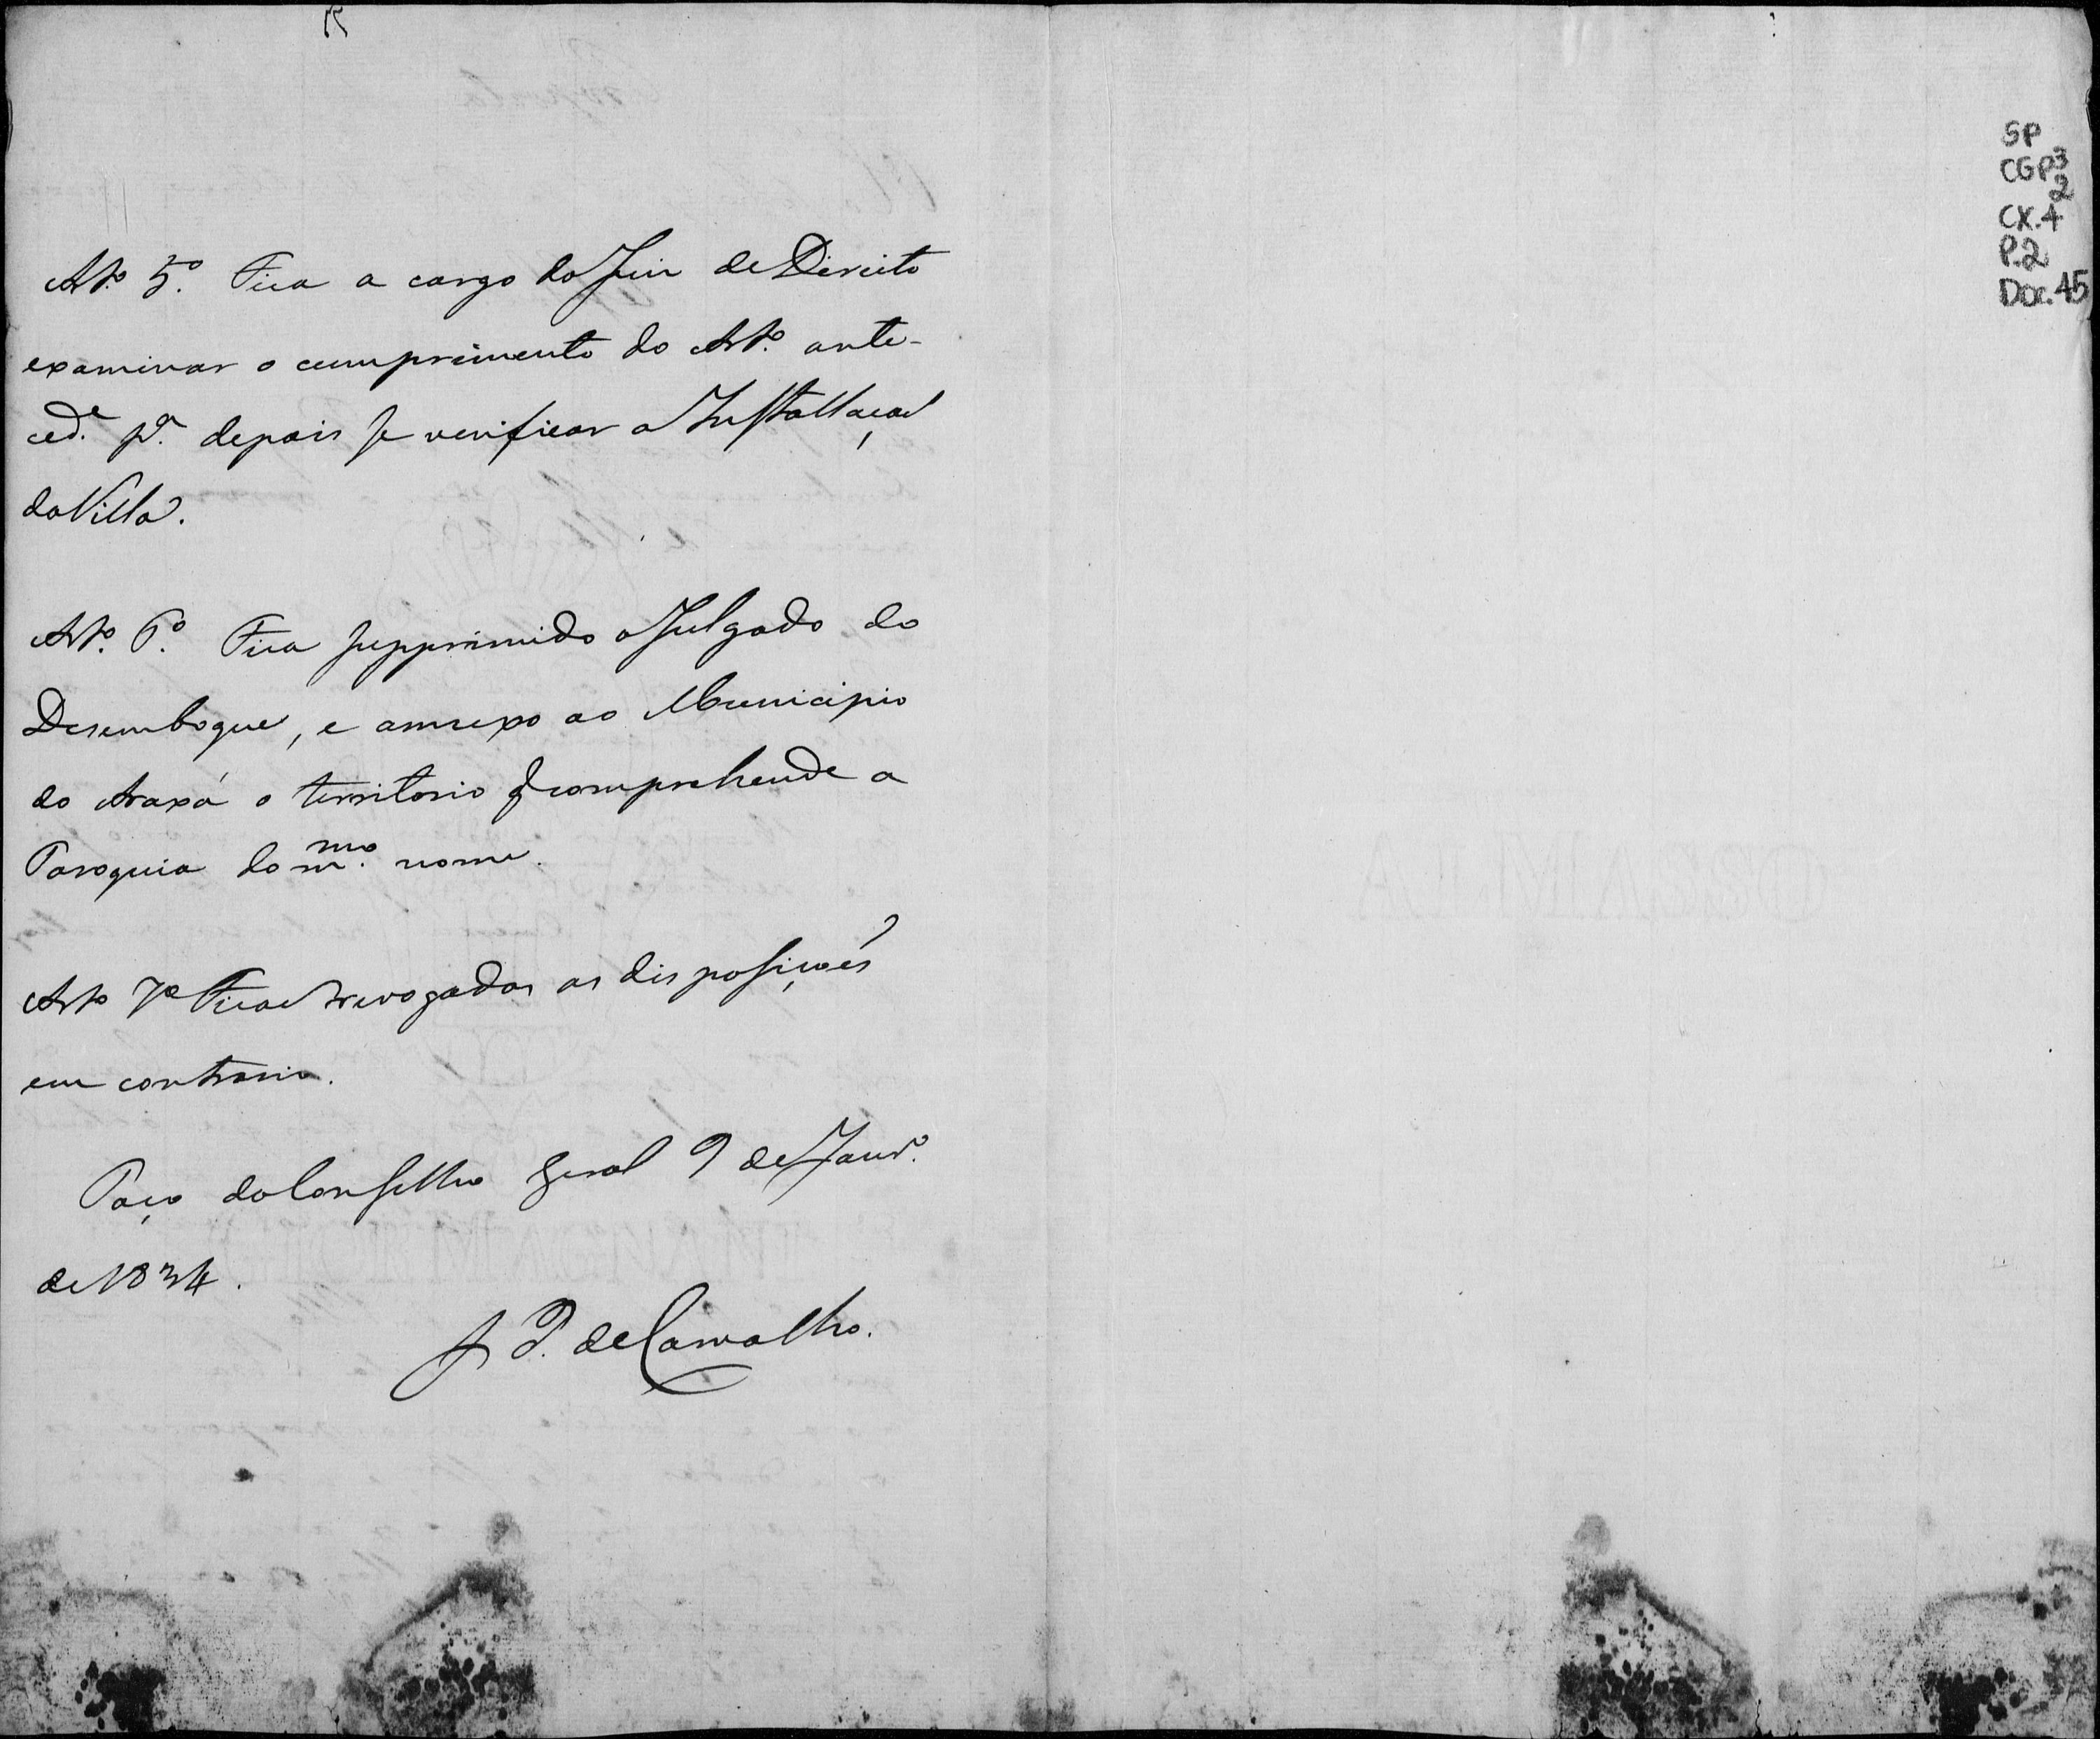 Art.º 5.º Fica a cargo do Juiz de Direito
examinar o cumprimento do Art.º ante-
ced.e p.a depois se verificar a Installação
da Villa.
Art.º 6.º Fica supprimido o Julgado do
Desemboque, e annexo ao Municipio
do Araxá o territorio q comprehende a
Paroquia do m.mo nome.
Art.º 7.º Ficão revogadas as disposições
em contrario.
Paço do Conselho Geral 9 de Janr.º
de 1834.
J P. de Carvalho.
SP
CGP3
2
CX.4
P.2
Doc.45